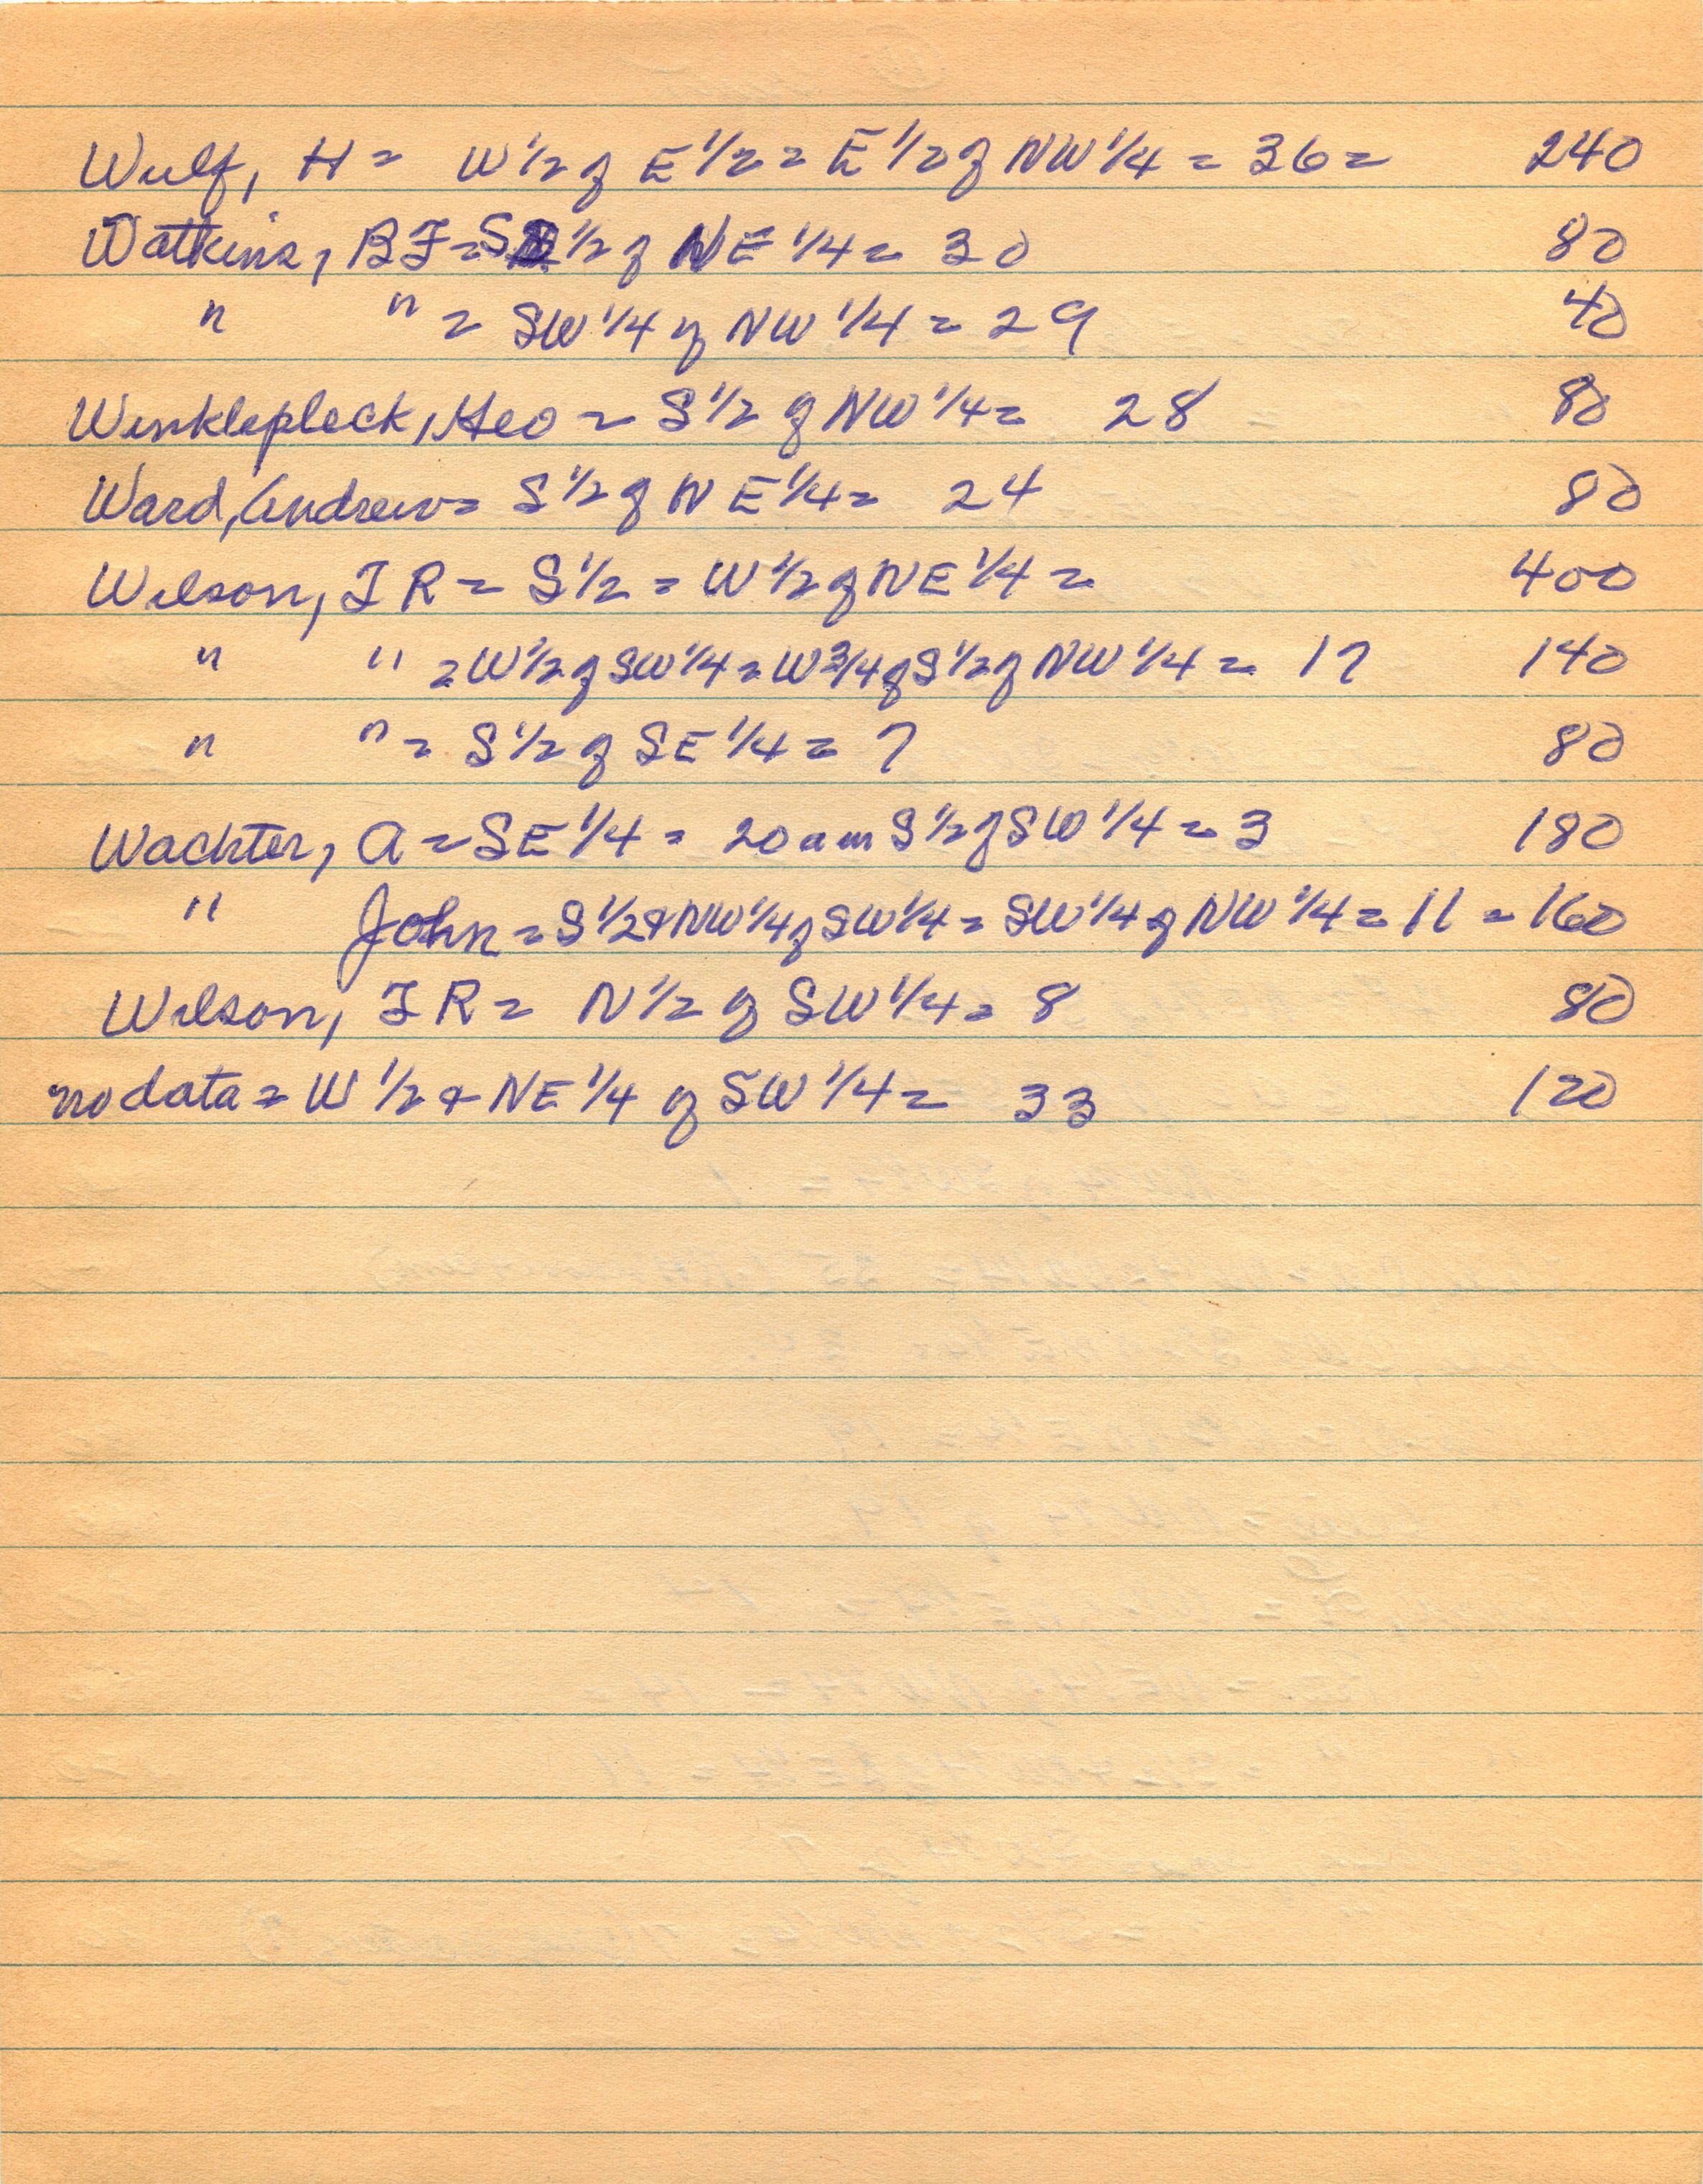 Wulf, H = W 1/2 of E 1/2 = E 1/2 of NW 1/4 = 36 = 240
Watkins, BF = S 1/2 of NE 1/4 = 30 80
" " = SW 1/4 of NW 1/4 = 29 40
Winklepleck, Geo = S 1/2 of NW 1/4 = 28 80
Ward, Andrew = S 1/2 of NE 1/4 = 24 80
Wilson, I R = S 1/2 = W 1/2 of NE 1/4 = 400
" " = W 1/2 of SW 1/4 = W 3/4 of S 1/2 of NW 1/4 = 17 140
" " = S 1/2 of SE 1/4 = 7 80
Wachter, A = SE 1/4 = 20 a in S 1/2 of SW 1/4 = 3 180
" John = S 1/2 & NW 1/4 of SW 1/4 = SW 1/4 of NW 1/4 = 11 = 160
Wilson, I R = N 1/2 of SW 1/4 = 8 80
no data = W 1/2 & NE 1/4 of SW 1/4 = 33 120